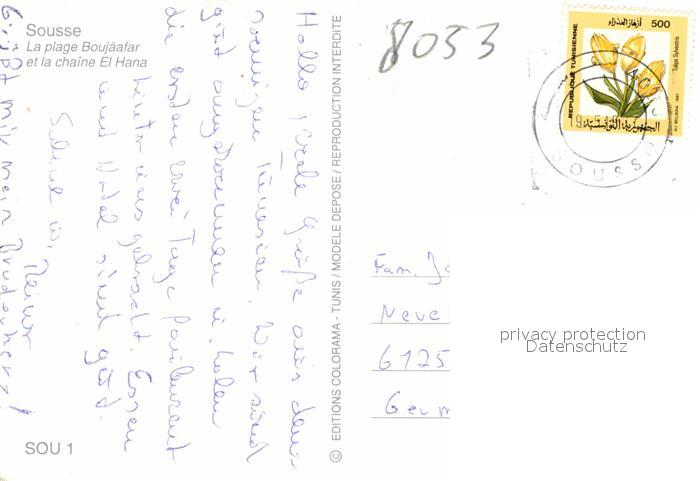 Sousse
La plage Boujâafar
et la chaîne El Hana
Hallo, viele Grüße aus dem
sonnigen Tunesien. Wir sind
gut angekommen u. haben
die ersten zwei Tage faulenzt
hinter uns gebracht. Essen
und Hotel sind gut.
Grüßt mir mein Bruderherz!
SOU 1
© EDITIONS COLORAMA - TUNIS / MODELE DEPOSE / REPRODUCTION INTERDITE
8033
REPUBLIQUE TUNISIENNE
أزهار العذراء
500
Tulipa Sylvestris
الجمهورية التونسية
SOUSSE
Fam.
6125
Germ
privacy protection
Datenschutz